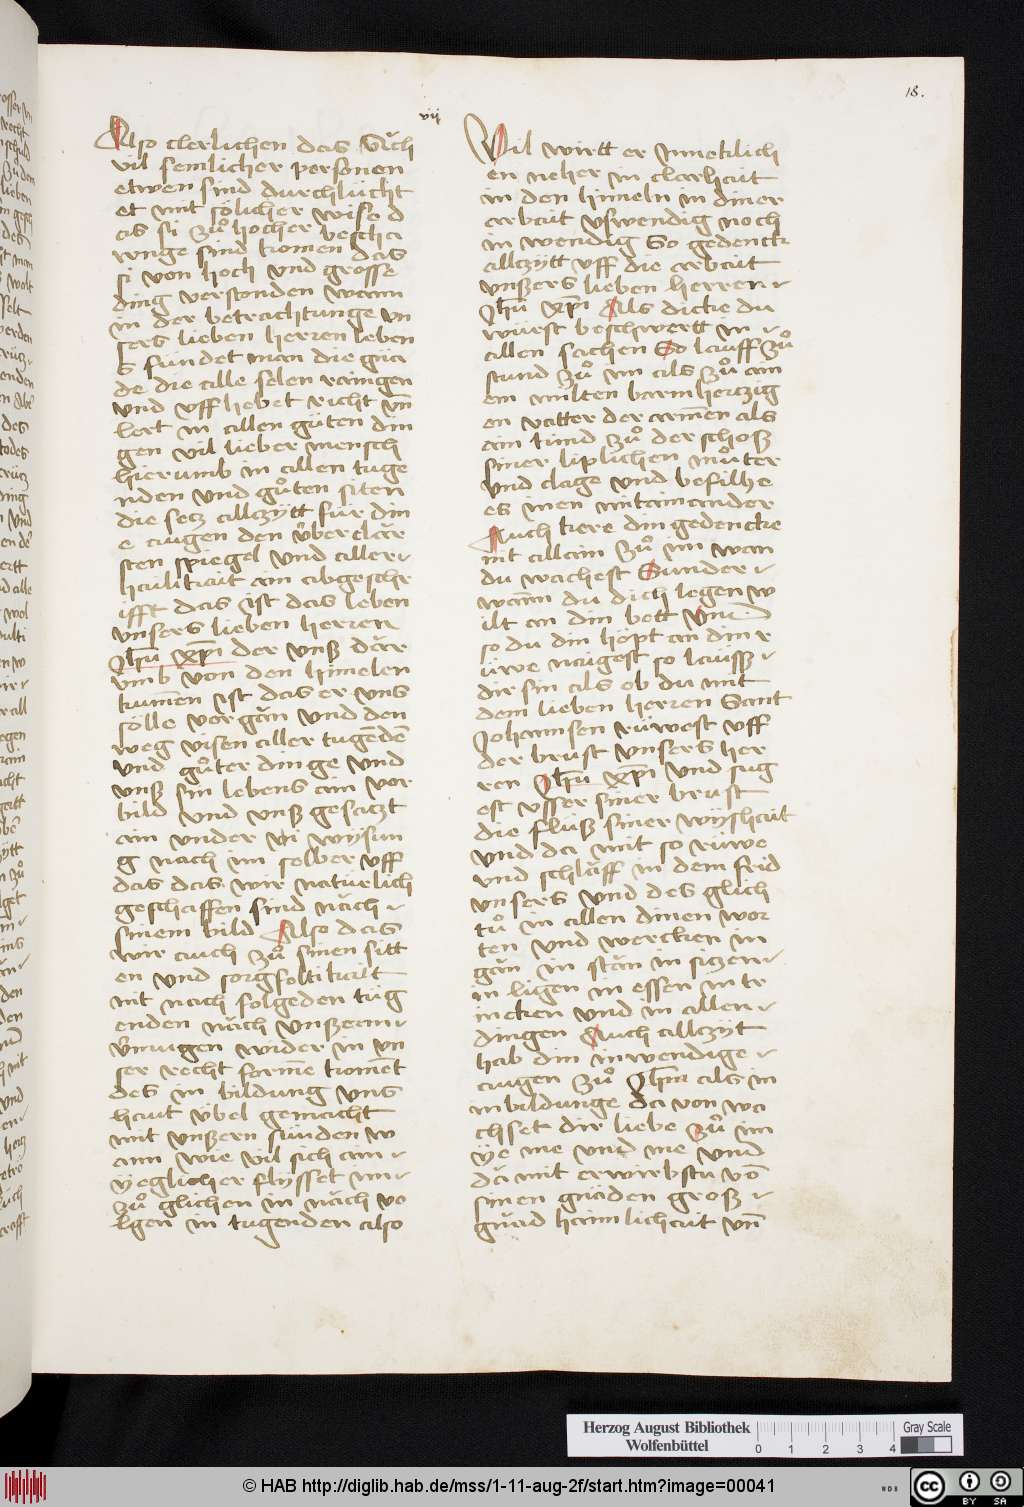 18.
vij
Also clerlichen das Vich
vil semlicher personen
etwen sind durchlücht
et mit sölicher wise d
as si zuͦ hocher bescho
wnge sind komen das
si von hoch vnd grosse
ding verstonden wann
in der betrachtunge vn
sers lieben herren leben
s fündet man die gna
de die alle selen rainigen
vnd vff hebet richt vn̄
lert in allen güten din
gen vil lieber mensch
hierumb in allen tuge
nden vnd guͦten siten
die setz allczytt für din
e augen den v̈ber clär
sten spiegel vnd aller
hailikait ain abgeschr
ifft das ist das leben
vnsers lieben herren
Jhū xp̄i der vnß där
vmb von den himelen
kumen ist das er vns
sölle vorgän vnd den
weg visen aller tugēdē
vnd guͦter dinge vnd
vnß sin lebens ain vor
bild vnd vnß gesaczt
ain vnder wysun
g nach im selber vff
das das wir natürlich
geschaffen sind näch
sinem bild Also das
wir auch zuͦ sinen sitt
en vnd sorgfoltikait
mit nach folgeden tüg
enden näch vnßerm
v̈mugen wider in vn
ser recht forme koment
des in bildung vns
haut v̈bel gemacht
mit vnßern sünden w
ann wie vil sich ain
yeglicher flysset im
zuͦ glichen in näch vo
lgen in tugenden also
Vil wirtt er vnnoklich
en neher in clarhait
in den himeln in diner
arbait vswendig noch
in wendig So gedenck
allczytt vff die arbait
vnßers lieben herren
Jhū xp̄i Als dicke du
würst beschwertt in
allen sachen So lauff zuͦ
stund zuͦ im als zuͦ ain
em milten barmhertzig
en vatter der armen als
ain kind zuͦ der schoß
siner liplichen muͦter
vnd clage vnd befilhe
es inen mitainander
Auch kere din gedencke
nit allain zuͦ im wan
du wachest Sunder
wann du dich legen w
ilt an din bett Vnd
so du din höpt an din r
üwe naigest so lausß
dir sin als ob du mit
dem lieben herren Sant
Johannsen rüwest vff
der brust vnsers her
ren Jhū xp̄i vnd sug
est vsser siner brust
die flüß siner wyshait
vnd da mit so rüwe
vnd schläff in dem frid
vnsers vnd des glich
tuͦ in allen dinen wor
ten vnd wercken in
gän in stän in siczen
in ligen in essen in tr
incken vnd in allen
dingen Auch allczyt
hab din inwendige
augen zuͦ Jhm als in
in bildunge da von wa
chset dir liebe zuͦ im
ye me vnd me vnd
dä mit erwirbstu vō
sinen gnäden groß
gnäd haimlichait vn̄
Herzog August Bibliothek
Wolfenbüttel
0 1 2 3 4
Gray Scale
© HAB http://diglib.hab.de/mss/1-11-aug-2f/start.htm?image=00041
WDB
cc BY SA